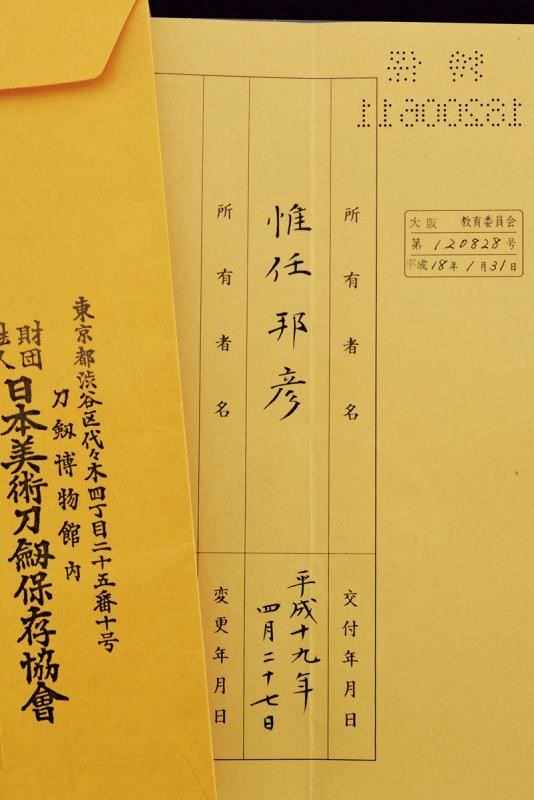 大阪 教育委員会
第 120828 号
平成18年1月31日
所有者名
交付年月日
惟任邦彦
平成十九年
四月二十七日
所有者名
変更年月日
東京都渋谷区代々木四丁目二十五番十号
刀剱博物館内
財団
日本美術刀剱保存協會